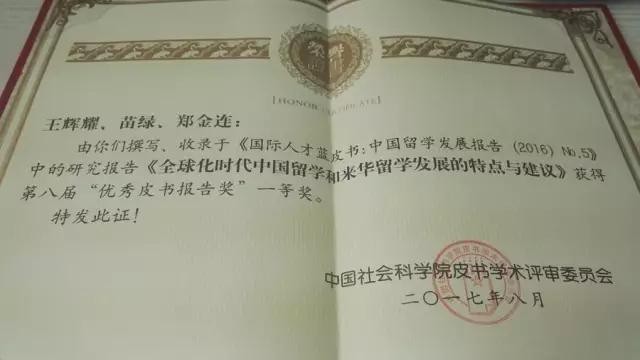 荣誉
[HONOR CERTIFICATE]
王辉耀、苗绿、郑金连:
由你们撰写、收录于《国际人才蓝皮书:中国留学发展报告(2016) No.5》
中的研究报告《全球化时代中国留学和来华留学发展的特点与建议》获得
第八届“优秀皮书报告奖”一等奖。
特发此证!
中国社会科学院皮书学术评审委员会
二〇一七年八月